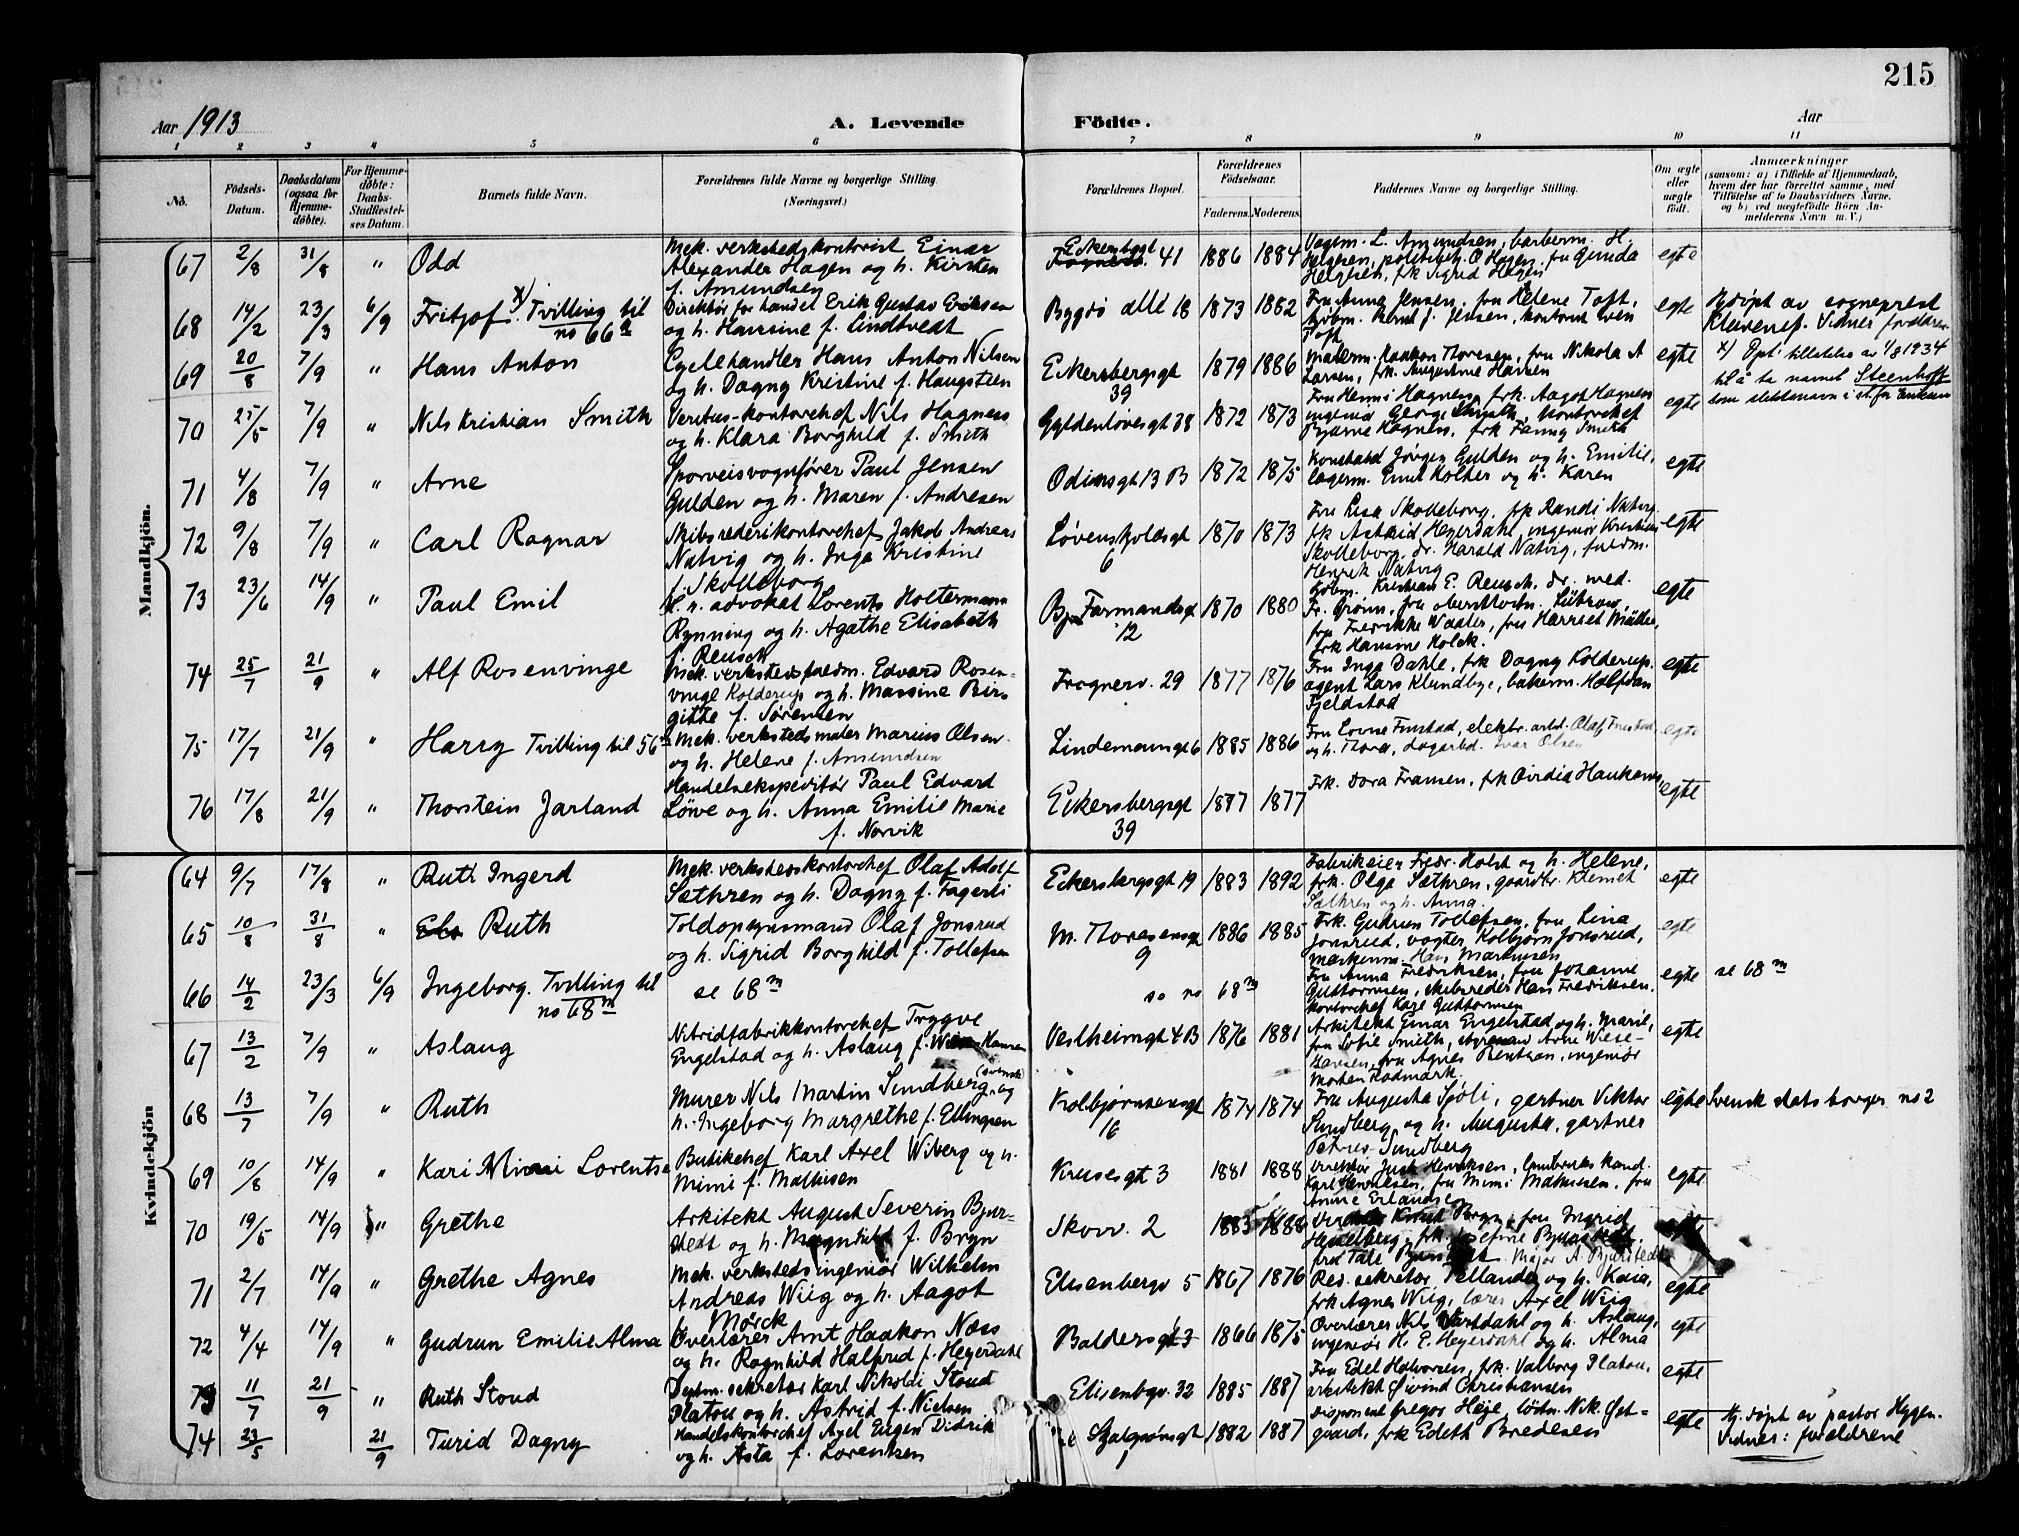 215
Aar 1913 A. Levende Födte. Aar
1 2 3 4 5 6 7 8 9 10 11
No. Födsels-Datum. Daabsdatum (ogsaa for Hjemmedøbte). For Hjemmedøbte: Daabs-Stadfæstelses Datum. Barnets fulde Navn. Forældrenes fulde Navne og borgerlige Stilling. (Næringsvei.) Forældrenes Bopæl. Forældrenes Födselsaar. Faderens. Moderens. Faddernes Navne og borgerlige Stilling. Om ægte eller uægte født. Anmærkninger (saasom: a) i Tilfælde af Hjemmedaab, hvem der har forrettet samme, med Tilföielse af to Daabsvidners Navne, og b) ved uægtefödte Börn Anmelderens Navn m. V.)
Mandkjön.
67 2/8 31/8 " Odd Mek. verkstedskontorist Einar Alexander Hagen og h. Kirsten f. Amundsen Eckersbggt. 41 1886 1884 Vognm. L. Amundsen, barberm. H. Helgesen, O Hagen, fru Gunda Helgesen, frk Sigrid Hagen egte
68 14/2 23/3 6/9 Fritjof x) Tvilling til no 66 Direktør for handel Erik Gustav Eriksen og h. Hansine f. Lindtvedt Bygdø allé 18 1873 1882 Fru Anna Jensen, fru Helene Toft, kjøbm. Bernt J. Jensen, kontorist Toft egte Hjdøpt av sogneprest Klaveness. Vidner foreldrene
x) Opt. tillatelse av 1/8 1934 til å ta navnet Steenhoff som slektsnavn i st. for Eriksen
69 20/8 7/9 " Hans Anton Cyclehandler Hans Anton Nilsen og h. Dagny Kristine f. Haugsteen Eckersbergsgt 39 1879 1886 Malerm. Haakon Thoresen, fru Nikola A Larsen, frk. Augustine Hansen egte
70 25/5 7/9 " Nils Kristian Smith Veritas-kontorchef Nils Hagness og h. Klara Borghild f. Smith Gyldenløvesgt 38 1872 1873 Fru Henni Hagness, frk. Aagot Hagness, ingeniør Georg Smith, kontorchef Bjarne Hagness, frk Fanny Smith egte
71 4/8 7/9 " Arne Sporveisvognfører Paul Jensen Gulden og h. Maren f. Andresen Odinsgt 13 B 1872 1875 Konstabel Jørgen Gulden og h. Emilie, lagerm. Emil Holter og h. Karen egte
72 9/8 7/9 " Carl Ragnar Skibsrederikontorchef Jakob Andreas Natvig og h. Inga Kristine f. Skolleborg Løvenskjoldsgt 6 1870 1873 Fru Lisa Skolleborg, frk Randi Natvig, frk Astrid Heyerdahl, ingeniør Kristian Skolleborg, dr. Harald Natvig, fuldm. Henrik Natvig egte
73 23/6 14/9 " Paul Emil H. r. advokat Lorents Holtermann Rynning og h. Agathe Elisabeth f. Reusch Bj. Farmandsgt 12 1870 1880 Kjøbm. Kristian E. Reusch, dr. med. Fr. Grønn, fru oberstløitn. Lützow, fru Fredrikke Waaler, fru Harriet Müller, frk Hansine Holck. egte
74 25/7 21/9 " Alf Rosenvinge Mek. verkstedsfuldm. Edvard Rosenvinge Kolderup og h. Massine Birgitte f. Sørensen Frognerv. 29 1877 1876 Fru Inga Dahle, frk Dagny Kolderup, agent Lars Klundbye, bakerm. Halfdan Fjeldstad egte
75 17/7 21/9 " Harry Tvilling til 56 Mek. verkstedsmaler Marius Olsen og h. Helene f. Amundsen Lindemannsgt 6 1885 1886 Fru Lovne Finstad, elektr. arbd. Olaf Finstad og h. Thora, dagarbd. Ivar Olsen egte
76 17/8 21/9 " Thorstein Jarland Handelsekspeditør Paul Edvard Löwe og h. Anna Emilie Marie f. Norvik Eckersbergsgt 39 1877 1877 Frk. Dora Fransen, frk egte
Kvindekjön
64 9/7 17/8 " Ruth Ingerd Mek. verkstedskontorchef Olaf Adolf Sæthren og h. Dagny f. Fagerli Eckersbergsgt 19 1883 1892 Fabrikeier Fredr. Holst og h. Helene, frk. Olga Sæthren, gaardbr. Klemet Sæthren og h. Anna. egte
65 10/8 31/8 " Ruth Toldopsynsmand Olaf Jonsrud og h. Sigrid Borghild f. Tollefsen M. Thoresensgt 9 1886 1885 Frk. Gudrun Tollefsen, fru Lina Jonsrud, vogter Kolbjørn Jonsrud, maskinm. Hans Martinsen egte
66 14/2 23/3 6/9 Ingeborg. Tvilling til no 68m se 68m se no 68m Fru Anna Fredriksen, fru Johanne Guttormsen, skibsreder Hans Fredriksen, kontorchef Karl Guttormsen egte se 68m
67 13/2 7/9 " Aslaug Nitridfabrikkontorchef Trygve Engelstad og h. Aslaug f. Wiese-Hansen Vestheimgt 4 B 1876 1881 Arkitekt Einar Engelstad og h. Marie, fru Sofie Smith, styrmand Arne Wiese-Hansen, fru Agnes Berntsen, ingeniør Morten Rodmark. egte
68 13/7 7/9 " Ruth Murer Nils Martin Sundberg (svensk) og h. Ingeborg Margrethe f. Ellingsen Kolbjørnsensgt 16 1874 1874 Fru Augusta Sjöli, gartner Viktor Sundberg og h. Augusta, gartner Petrus Sundberg egte Svensk statsborger no 2
69 10/8 14/9 " Kari Mimi Lorentse Butikchef Karl Axel Wiberg og h. Mimi f. Mathisen Krusesgt 3 1881 1888 Direktør Just Henriksen, landbruks kand. Karl Henriksen, fru Mimi Mathisen, fru Anine Erlandsen egte
70 19/5 14/9 " Grethe Arkitekt August Severin Bjurstedt og h. Magnhild f. Bryn Skovv. 2 1883 1888 Knut Bryn, fru Ingrid Hesselberg, frk Josefine Bjurstedt, fru Tali Bjurstedt. Major A. Bjurstedt
71 2/7 14/9 " Grethe Agnes Mek. verkstedsingeniør Wilhelm Andreas Wiig og h. Aagot f. Mørck Elisenbergv 5 1867 1876 Red. sekretær Tellander og h. Kaia, frk Agnes Wiig, lærer Axel Wiig egte
72 4/4 14/9 " Gudrun Emilie Alma Overlærer Arnt Haakon Næss og h. Ragnhild Halfrid f. Heyerdahl Baldersgt 3 1866 1875 Overlærer Nils Vartdahl og h. Aslaug, ingeniør H. E. Heyerdahl og h. Alma egte
73 11/7 21/9 " Ruth Stoud Deptm. sekretær Karl Nikolai Stoud Platou og h. Astrid f. Nielsen Elisenbgv. 32 1885 1887 Fru Edel Halvorsen, frk. Valborg Platou, arkitekt Øivind Christiansen egte
74 23/5 21/9 Turid Dagny Handelskontorchef Axel Eugen Didrik og h. Asta f. Lorentzen 1 1882 1887 Disponent Gregor Heje, løitn. Nik. Østgaard, frk Edith Bredesen egte Hj. døpt av pastor Hygen. Vidner: foreldrene